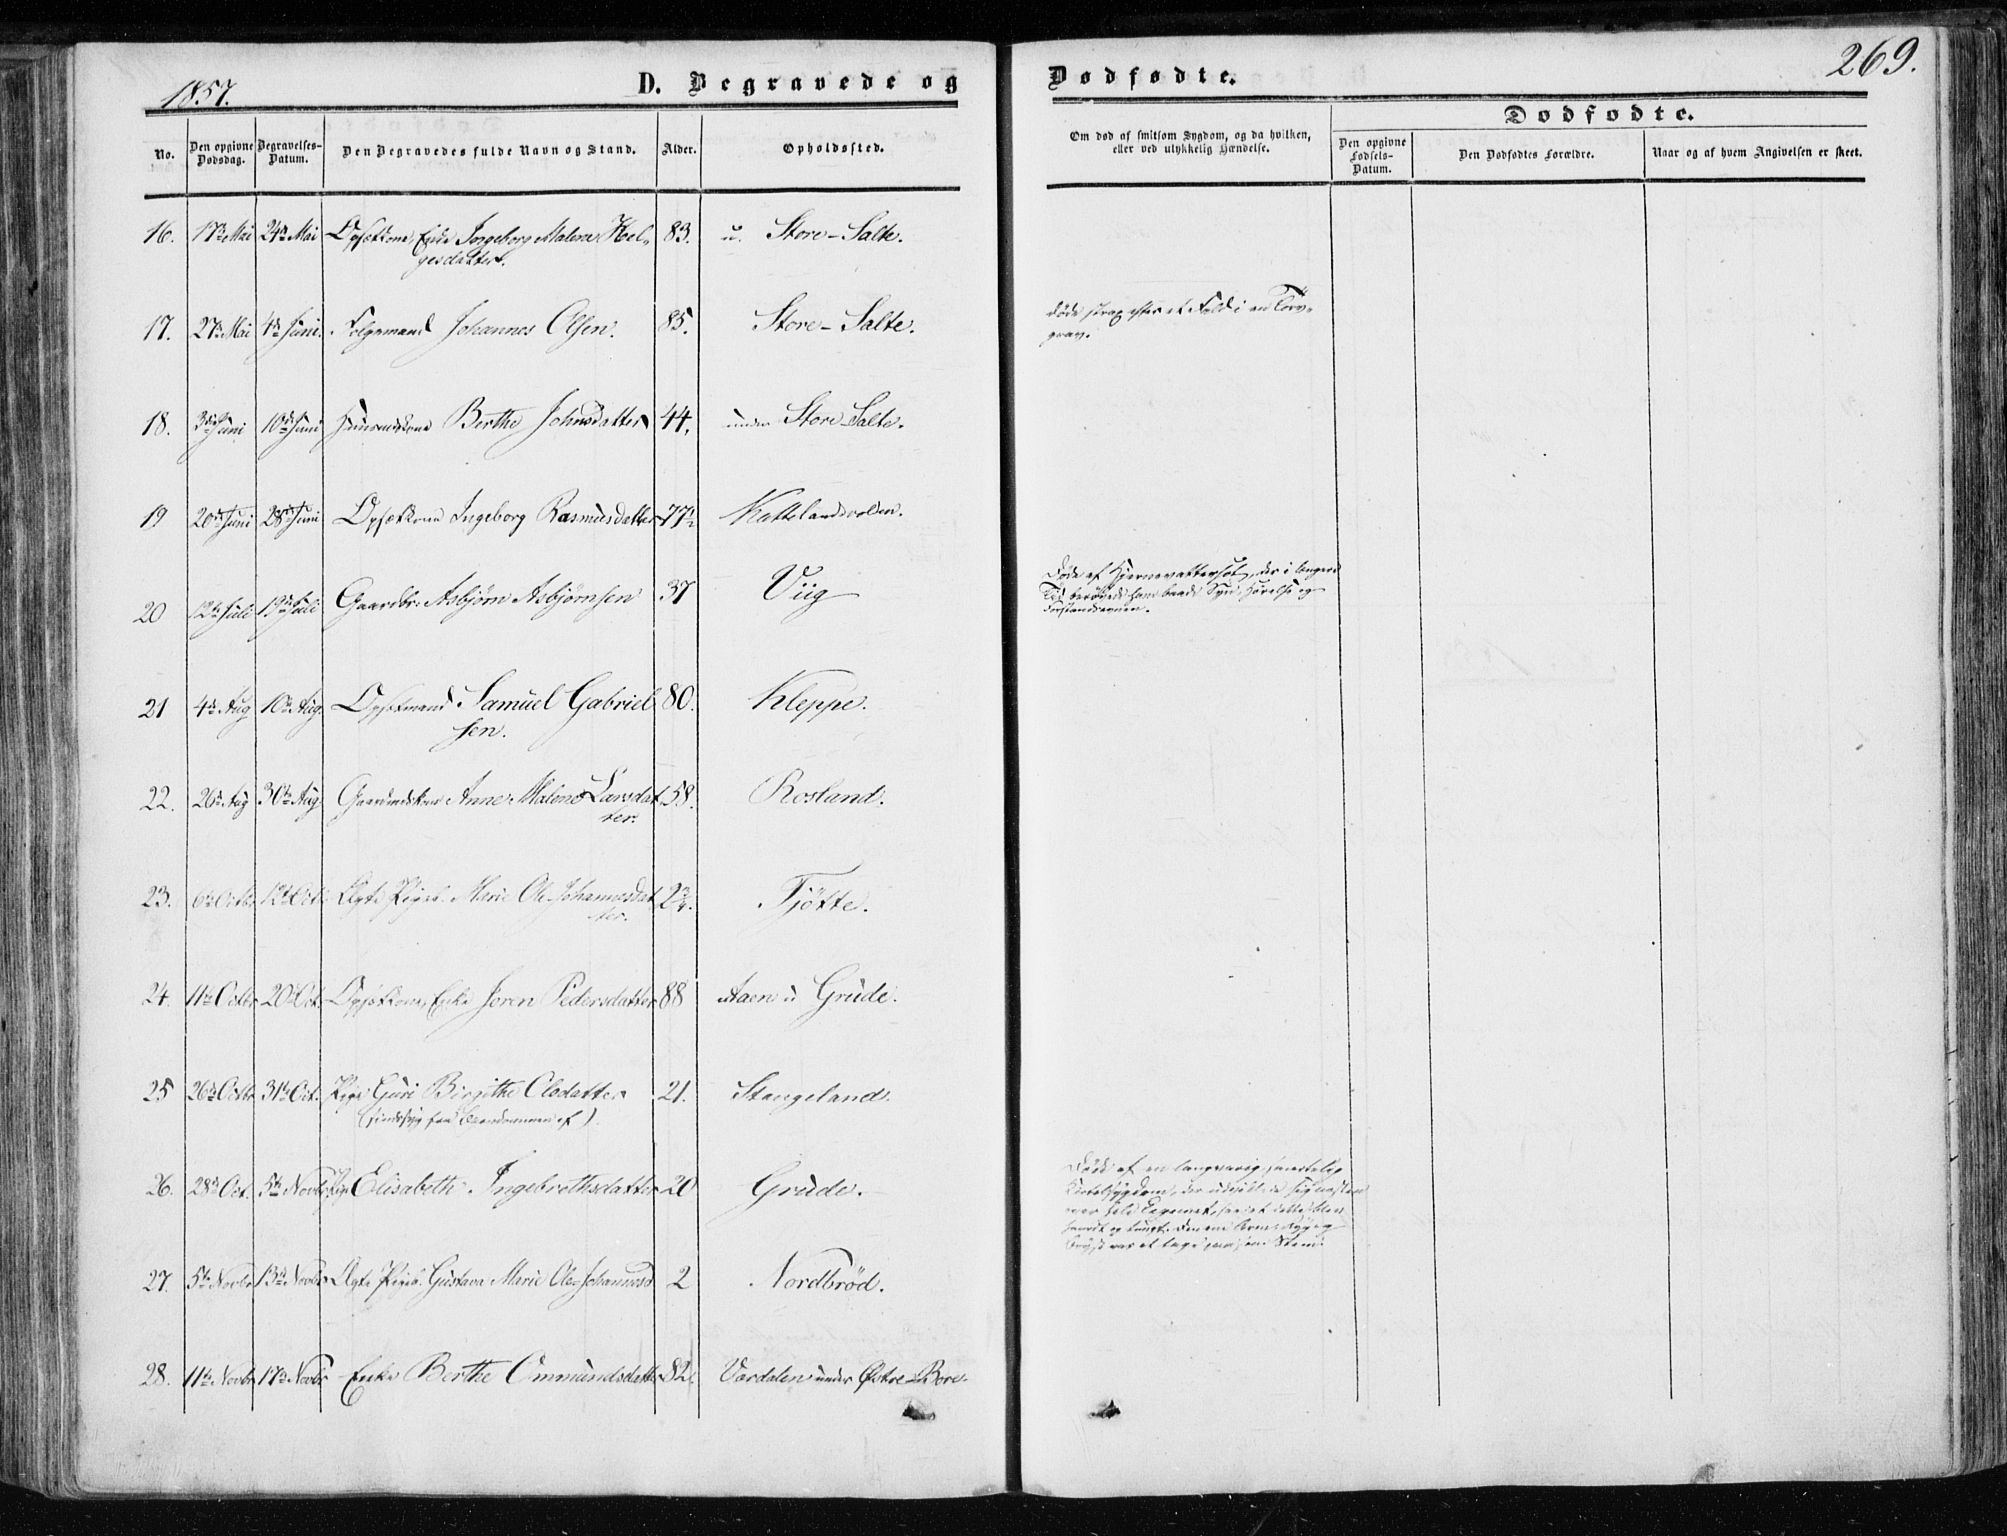 1857.
D. Begravede og
Dødfødte.
269.
No.
Den opgivne Dødsdag.
Begravelses-Datum.
Den Begravedes fulde Navn og Stand.
Alder.
Opholdssted.
Om død af smitsom Sygdom, og da hvilken,
eller ved ulykkelig Hændelse.
Dødfødte.
Den opgivne Fødsels-Datum.
Den Dødfødtes Forældre.
Naar og af hvem Angivelsen er skeet.
16. 17de Mai 24de Mai Enke Ingeborg Malene Hel- 83. u. Store-Salte.
gesdatter.
17. 27de Mai 4de Juni. Folgemand Johannes Olsen. 85. Store-Salte. døde strax efter et Fald i en Torv-
grav.
18. 3die Juni 10de Juni Huusmdskone Berthe Johnsdatter 44. under Store Salte.
19 20de Juni 28de Juni Ingeborg Rasmusdatter 77½ Kattelandsvolden.
20 12te Juli 19de Juli Gaardbr. Asbjørn Asbjørnsen 37 Viig Døde af Hjernevattersot, der i længere
Tid berøvede ham baade Syn, Hørelse og
Forstandsevnen.
21 4de Aug 10de Aug. Samuel Gabriel 80. Kleppe.
sen.
22. 26de Aug 30te Aug. Gaardmdskone Anne Malene Larsdat 58. Rosland.
ter.
23. 6te Octbr 12te Oct. Ægte Pigeb. Marie Ole Johannesdat 2¾. Tjøtte.
ter.
24. 11te Octbr 20de Oct. Enke Joren Pedersdatter 88 Aaen u Grude.
25 26de Octbr 31te Oct. Pige Guri Birgithe Olsdatter 21. Stangeland.
(sindssyg fra Barndommen af)
26. 28de Oct. 5te Novbr Pige Elisabeth Ingebrethsdatter 20 Grude. Døde af en langvarig, smertelig
Kirtelsygdom, der
over hele Legemet,

27. 5te Novbr 13de Novbr Ægte Pigeb. Gustava Marie Ole-Johannesd 2 Nordbrød.
28. 11te Novbr 17de Novbr Enke Berthe Ommundsdatter 82. Vardalen under Østre-Bore.